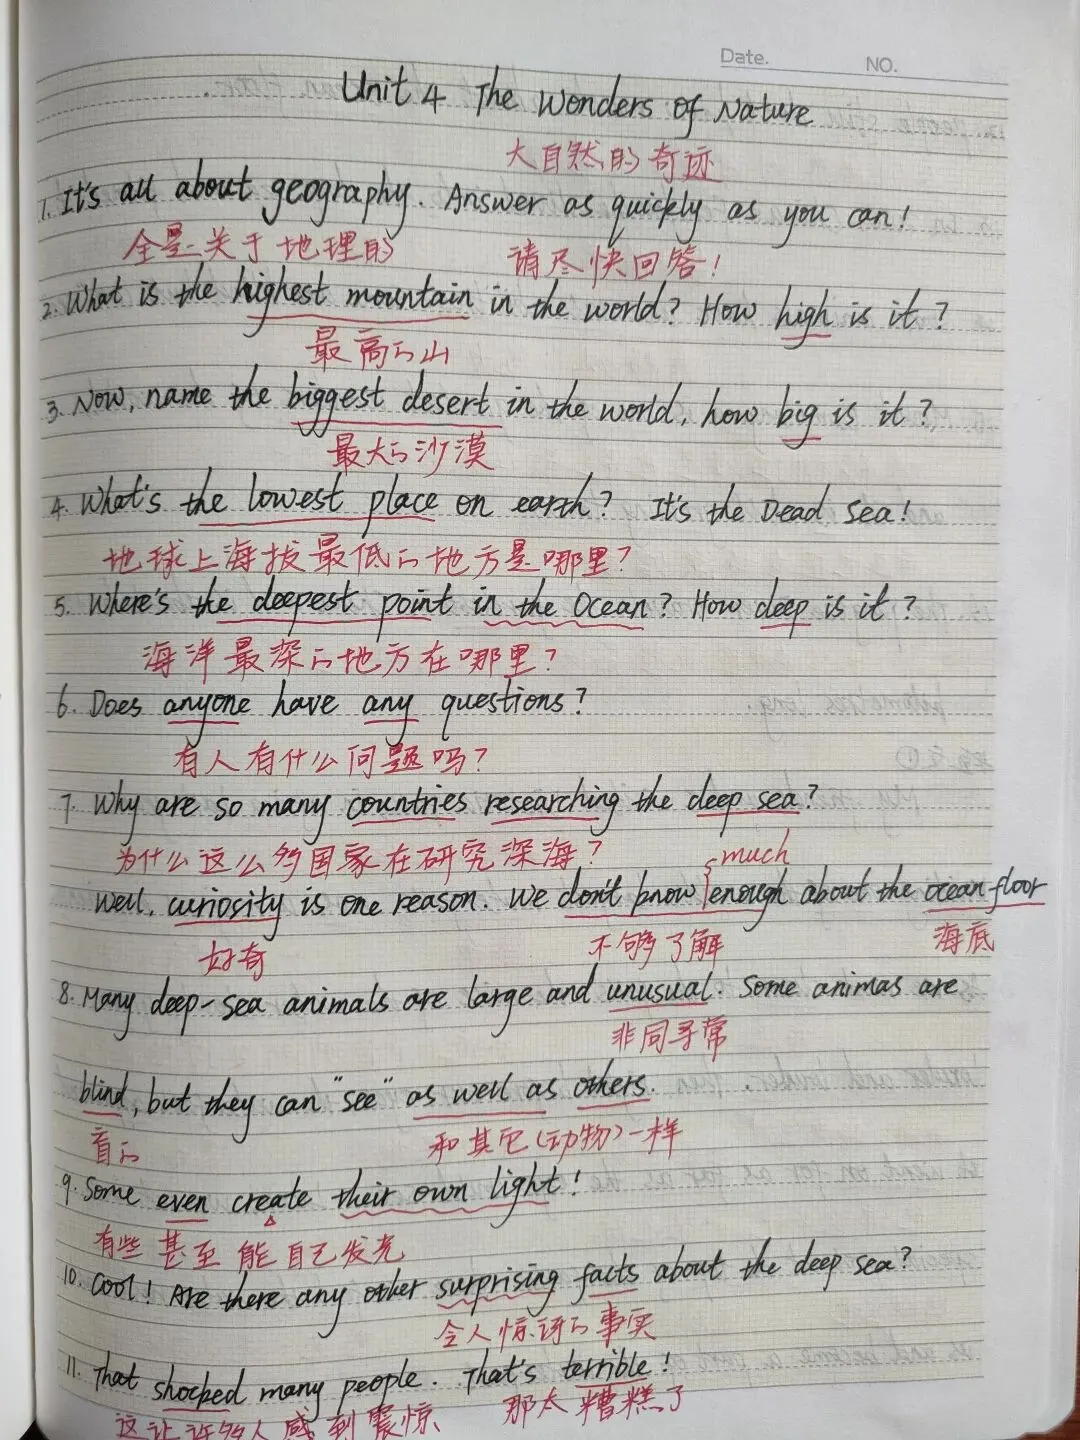 Date. NO.
Unit 4 The Wonders of Nature
大自然的奇迹
1. It's all about geography. Answer as quickly as you can!
全是关于地理的 请尽快回答!
2. What is the highest mountain in the world? How high is it?
最高的山
3. Now, name the biggest desert in the world, how big is it?
最大的沙漠
4. What's the lowest place on earth? It's the Dead Sea!
地球上海拔最低的地方是哪里?
5. Where's the deepest point in the Ocean? How deep is it?
海洋最深的地方在哪里?
6. Does anyone have any questions?
有人有什么问题吗?
7. Why are so many countries researching the deep sea?
为什么这么多国家在研究深海? much
Well, curiosity is one reason. We don't know enough about the ocean floor
好奇 不够了解 海底
8. Many deep-sea animals are large and unusual. Some animas are
非同寻常
blind, but they can "see" as well as others.
盲的 和其它(动物)一样
9. Some even create their own light!
有些甚至能自己发光
10. Cool! Are there any other surprising facts about the deep sea?
令人惊讶的事实
11. That shocked many people. That's terrible!
这让许多人感到震惊 那太糟糕了